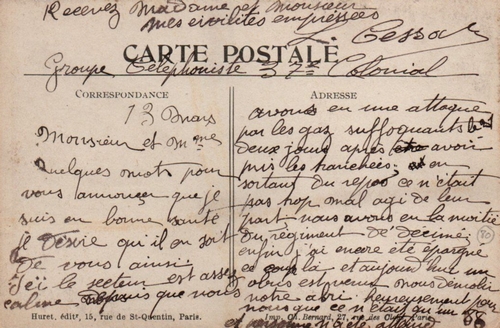 Recevez Madame et Monsieur
mes civilités empressées
Cessac
CARTE POSTALE
Groupe Téléphoniste 37e Colonial
CORRESPONDANCE
13 Mars
Monsieur et Mme
Quelques mots pour
vous annoncer que je
suis en bonne santé
je désire qu'il en soit
de vous ainsi
Ici le secteur est assez
calme depuis que nous
ADRESSE
avons eu une attaque
par les gaz suffoquants les
deux jours après avoir
pris les tranchées, en
sortant du repos ce n'était
pas trop mal agi de leur
part nous avons eu la moitié
du régiment de décimé
enfin j'ai encore été épargné
ce coup là et aujourd'hui un
obus est venu nous démolir
notre abri heureusement pour
nous que ce n'était qu'un
et personne n'a été atteint
Huret, éditr, 15, rue de St-Quentin, Paris.
Imp. Ch. Bernard, 27, rue des Paris
68